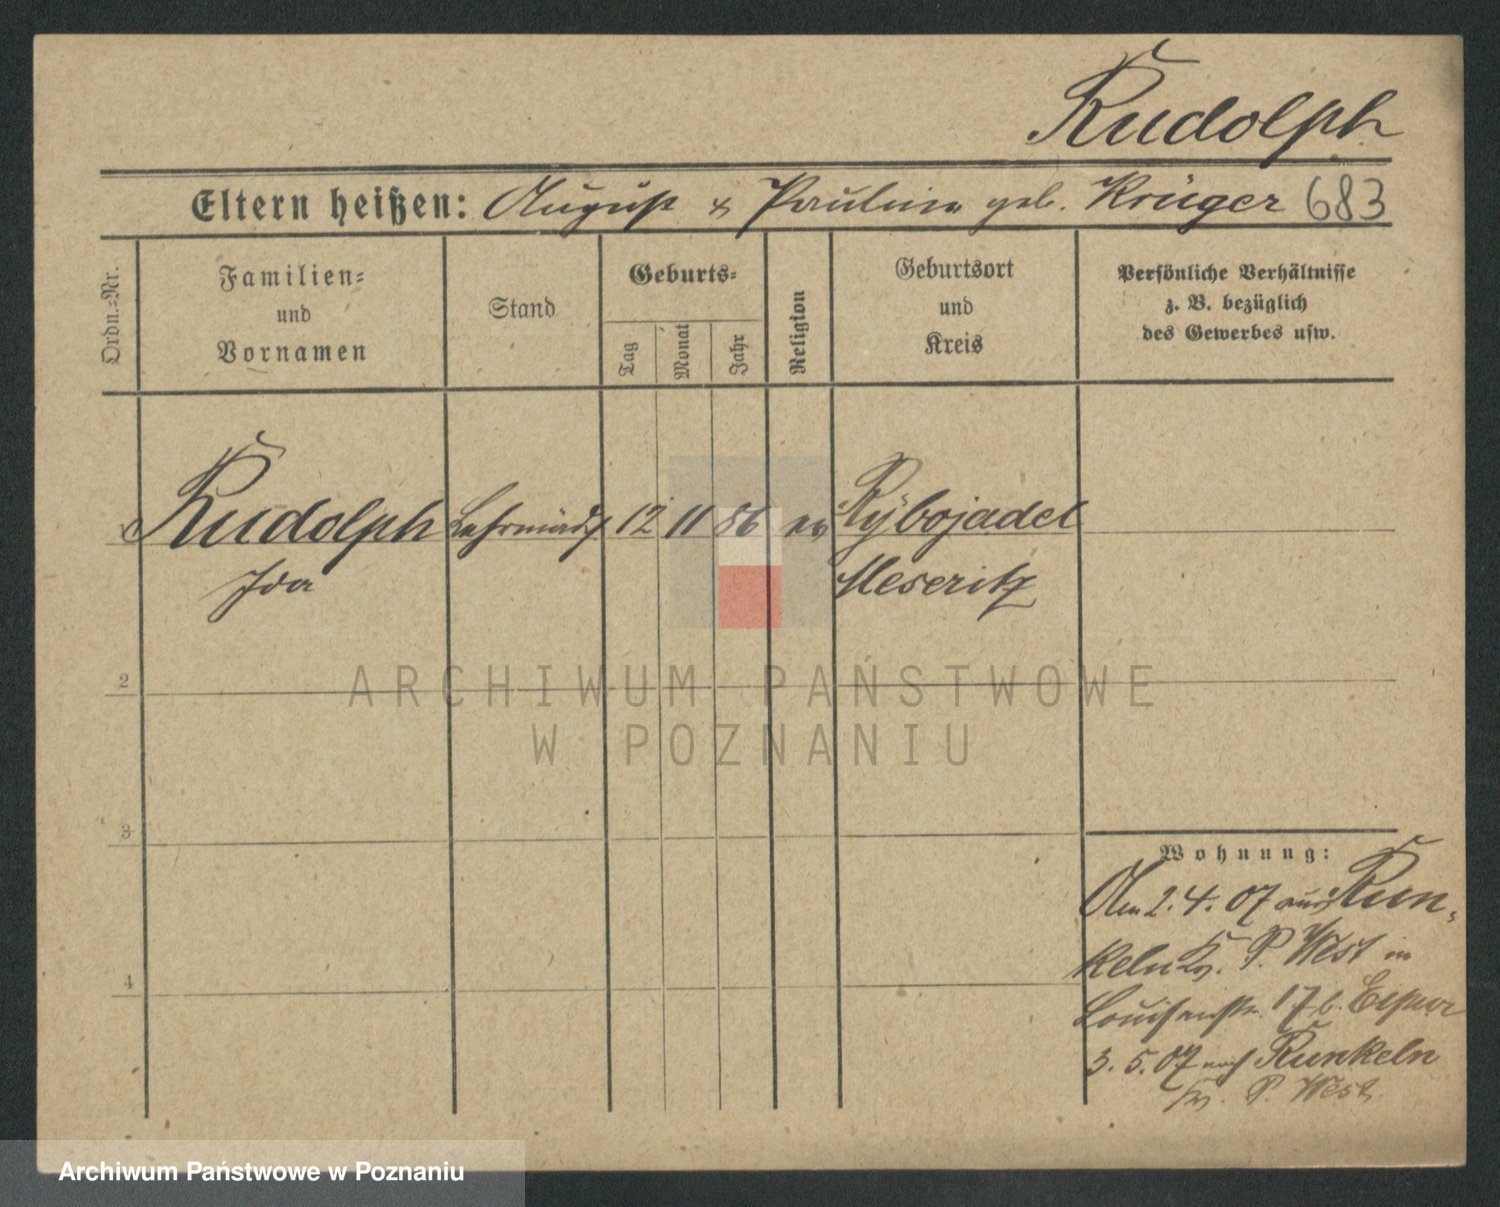 Rudolph
Eltern heißen: August & Pauline geb. Krüger 683
Ordn.-Nr.
Familien- und Vornamen
Stand
Geburts-
Tag
Monat
Jahr
Religion
Geburtsort und Kreis
Persönliche Verhältnisse z. B. bezüglich des Gewerbes usw.
Rudolph Lehrmädch 12 11 86 ev Rybojadel
Ida Meseritz
2
3
4
Wohnung:
Am 2. 4. 07 aus Run-
keln Kr. P. West in
Louisenstr. 17 b.
3. 5. 07 nach Runkeln
Kr. P. West.
ARCHIWUM PAŃSTWOWE
W POZNANIU
Archiwum Państwowe w Poznaniu